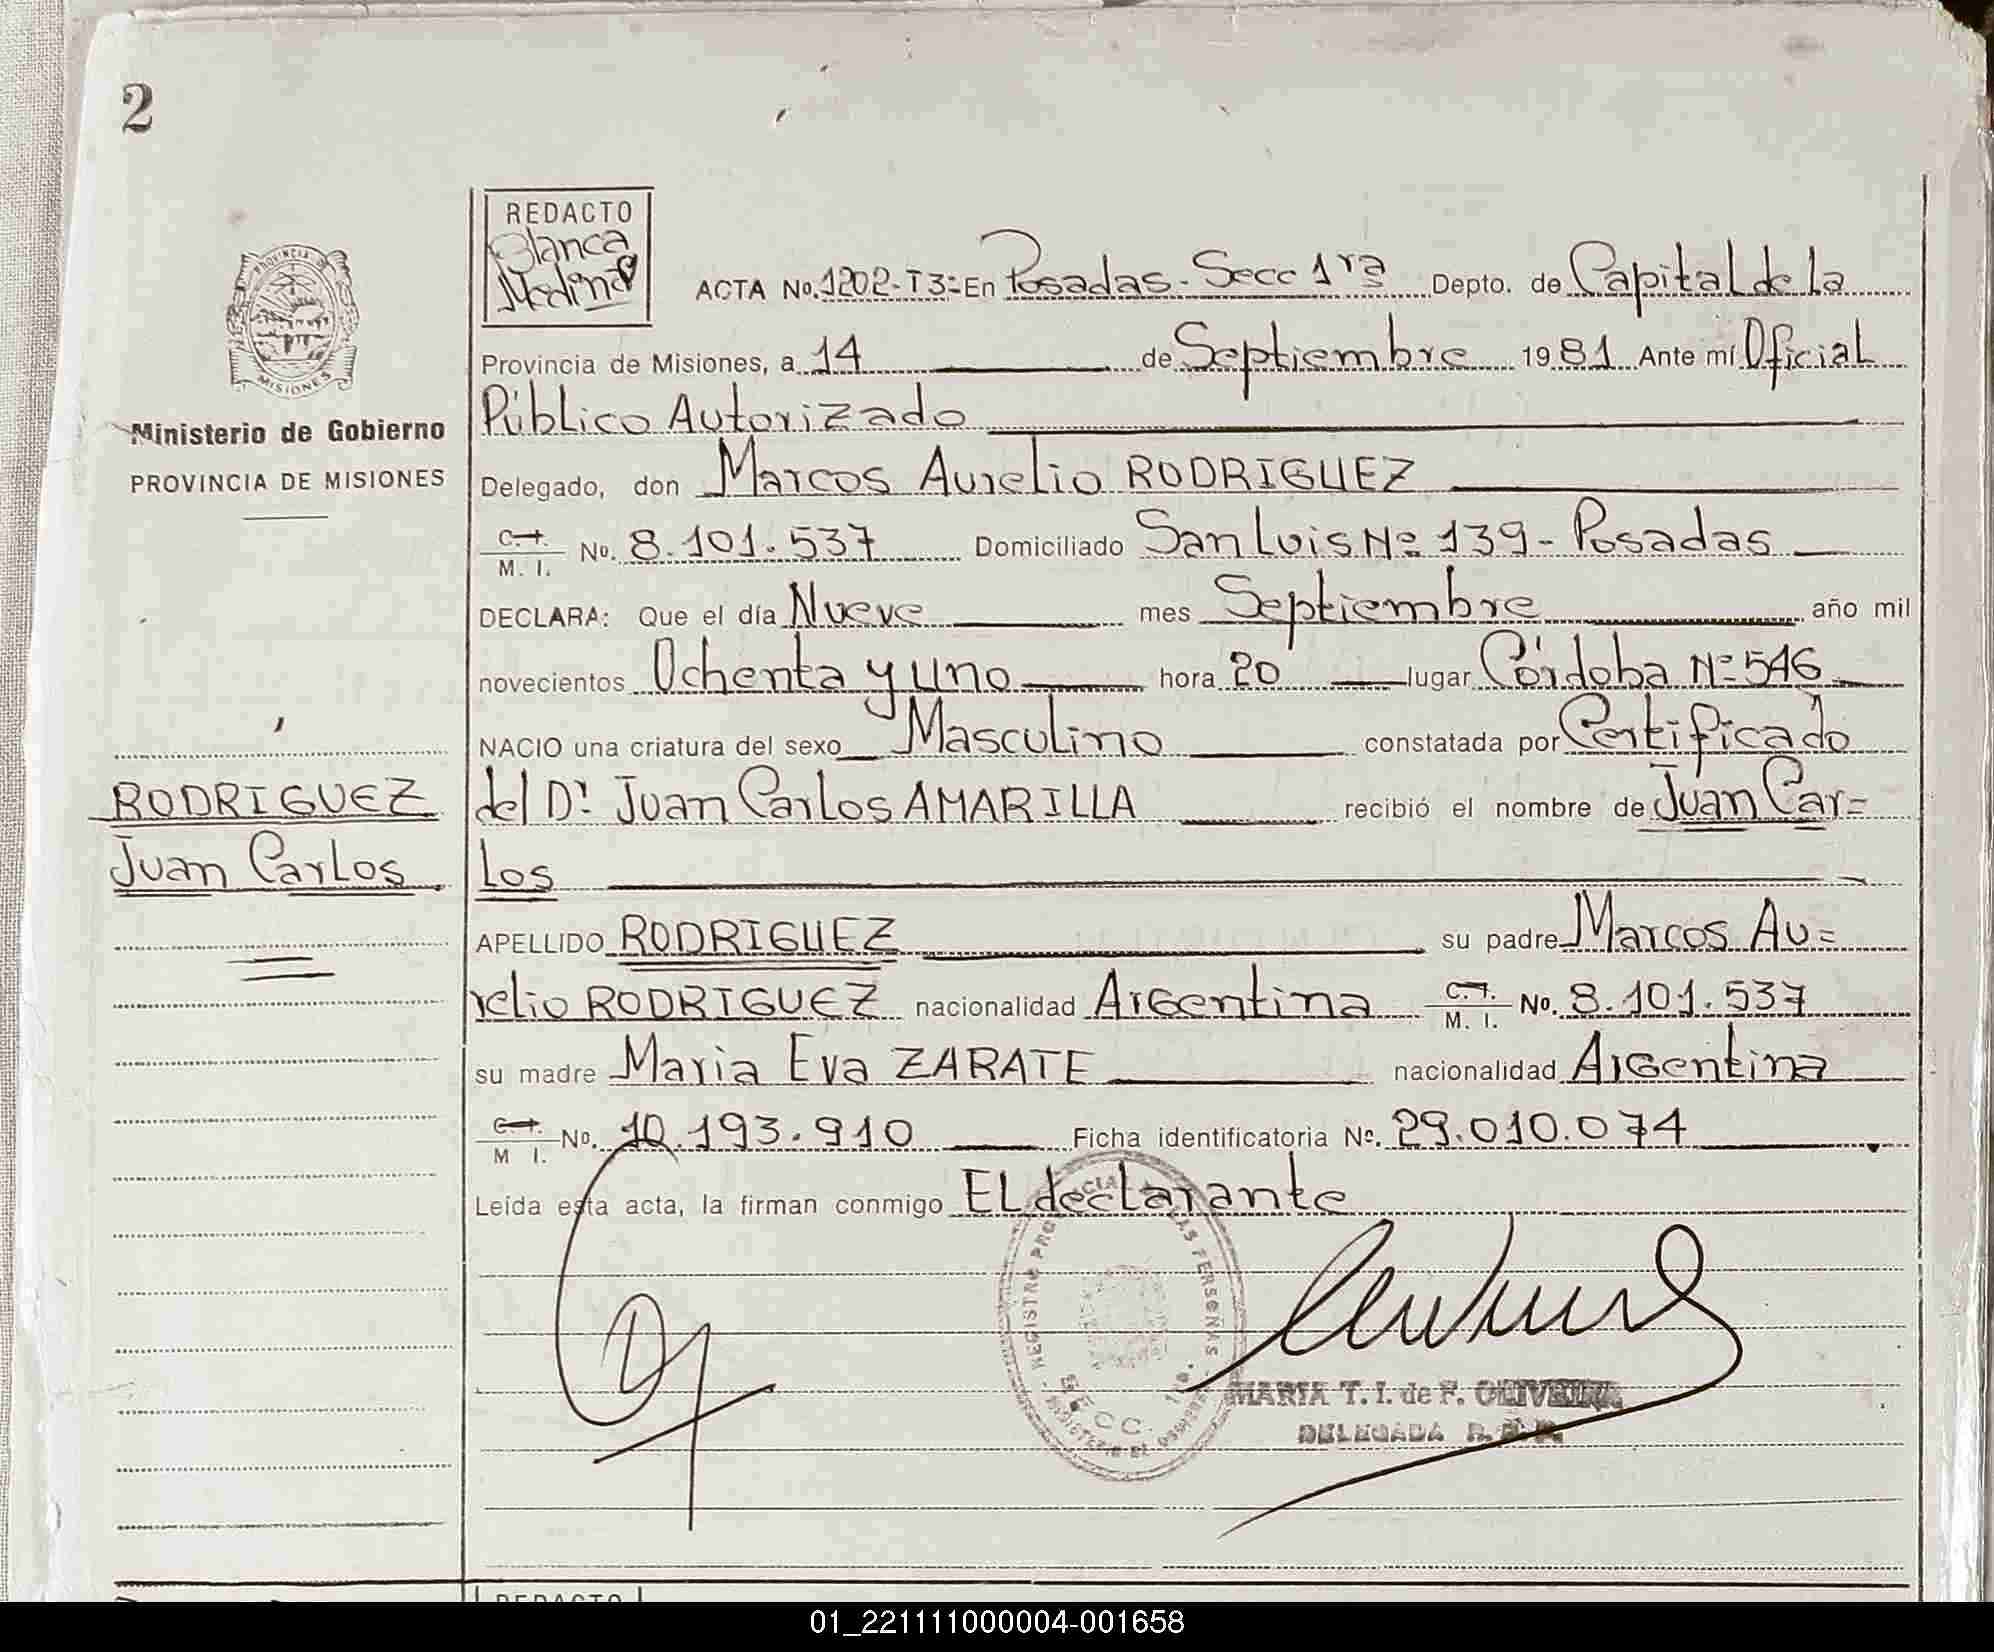 2
REDACTO
Blanca
Medina
PROVINCIA DE
MISIONES
Ministerio de Gobierno
PROVINCIA DE MISIONES
ACTA No. 1202-T3=En Posadas-Secc 1ra Depto. de Capital de la
Provincia de Misiones, a 14 de Septiembre 1981 Ante mí Oficial
Público Autorizado
Delegado, don Marcos Aurelio RODRIGUEZ
C. I.
M. I. No. 8.101.537 Domiciliado San Luis Nº 139-Posadas
DECLARA: Que el día Nueve mes Septiembre año mil
novecientos Ochenta y uno hora 20 lugar Córdoba Nº 546
NACIO una criatura del sexo Masculino constatada por Certificado
del Dr Juan Carlos AMARILLA recibió el nombre de Juan Car=
los
RODRIGUEZ
Juan Carlos
APELLIDO RODRIGUEZ su padre Marcos Au=
relio RODRIGUEZ nacionalidad Argentina C. I. M. I. No. 8.101.537
su madre Maria Eva ZARATE nacionalidad Argentina
C. I. M I. No. 10.193.910 Ficha identificatoria No. 29.010.074
Leída esta acta, la firman conmigo EL declarante
REGISTRO PERSONAS
SECC. 1ra.
MARIA T. I. de F. OLIVEIRA
DELEGADA
REDACTO
01_221111000004-001658